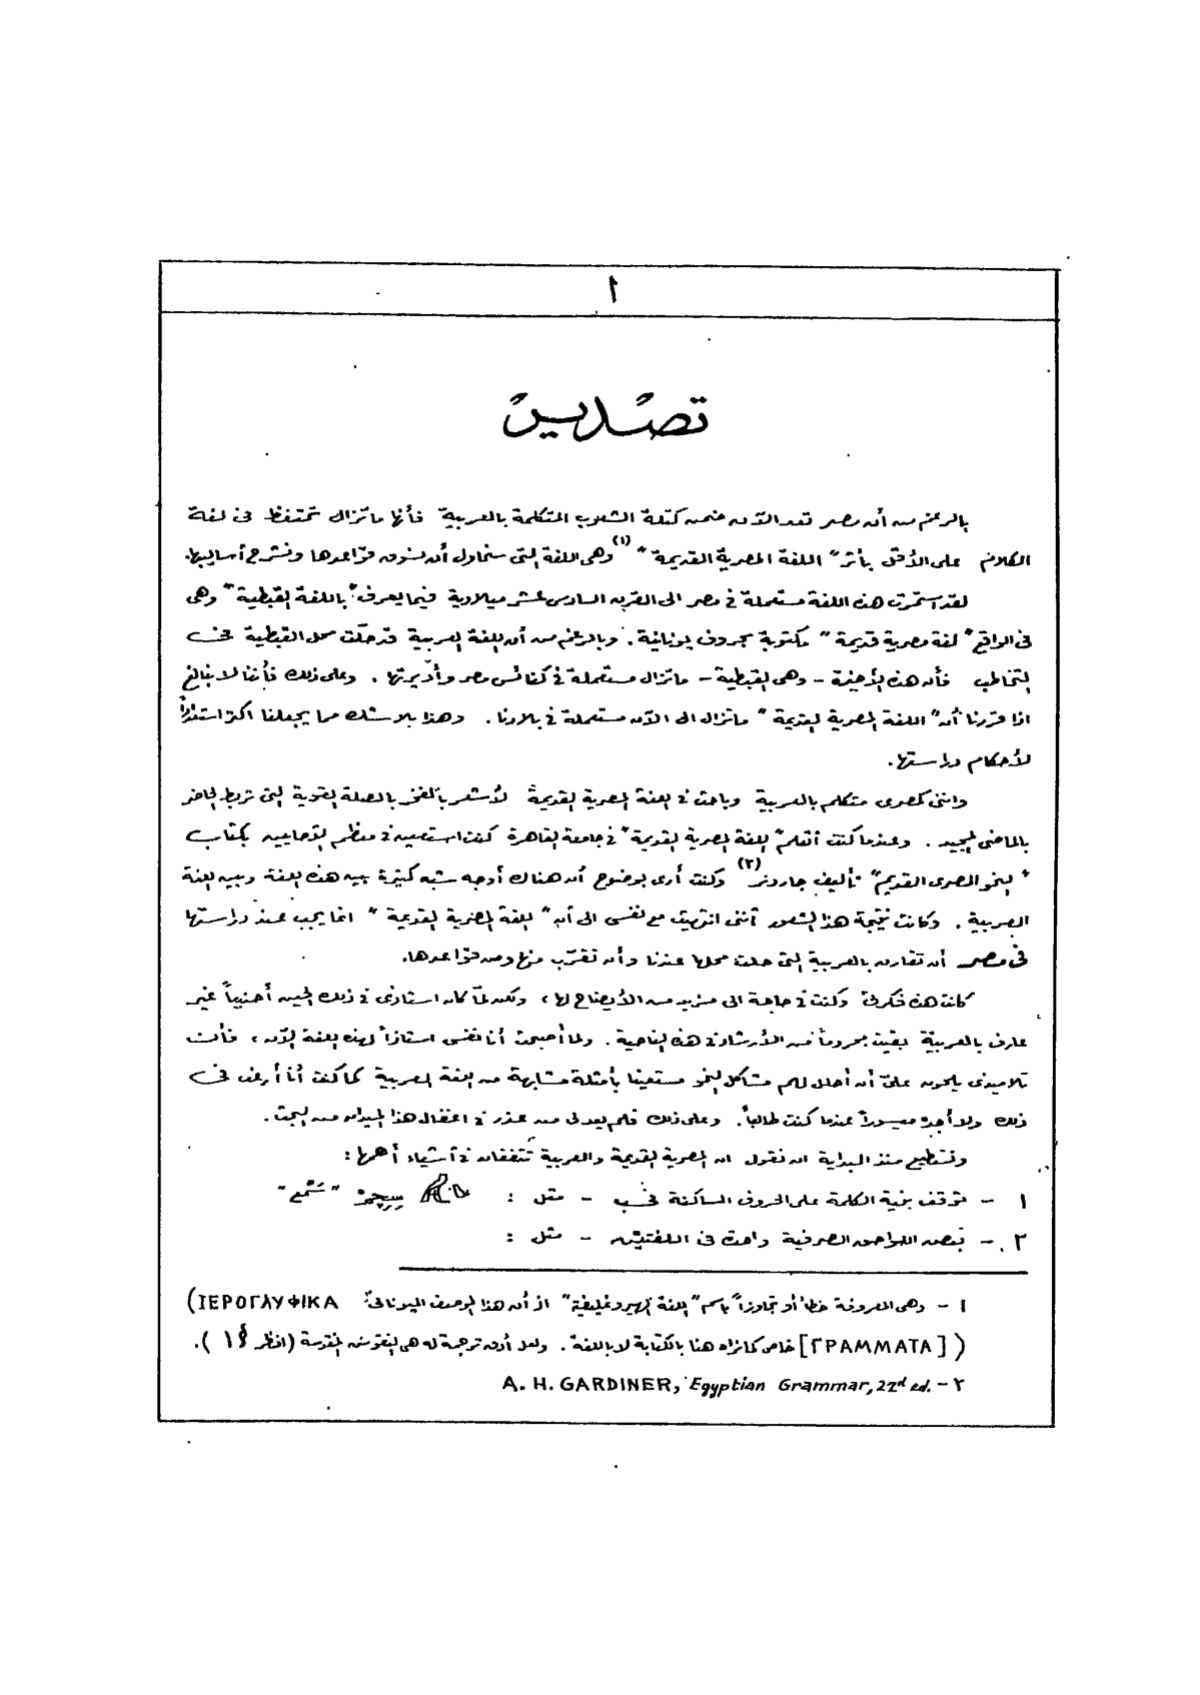 ١
تصدير
بالرغم من أن مصر تعد الآن ضمن كتلة الشعوب المتكلمة بالعربية فأنها ماتزال تحتفظ فى لغة
الكلام على الأقل بأثر " اللغة المصرية القديمة " (١) وهى اللغة التى سنحاول أن نسوق قواعدها ونشرح أساليبها.
لقد استمرت هذه اللغة مستعملة فى مصر الى القرن السادس عشر ميلادية فيما يعرف " باللغة القبطية " وهى
فى الواقع " لغة مصرية قديمة " مكتوبة بحروف يونانية . وبالرغم من أن اللغة العربية قد حلت محل القبطية فى
التخاطب فأن هذه الأخيرة - وهى القبطية - ماتزال مستعملة فى كنائس مصر وأديرتها . وعلى ذلك فأننا لا نبالغ
اذا قررنا أن " اللغة المصرية القديمة " ماتزال الى الآن مستعملة فى بلادنا . وهذا بلا شك مما يجعلنا اكثر استعداداً
لأحكام دراستها .
واننى كمصرى متكلم بالعربية وباحث فى اللغة المصرية القديمة لأشعر بالفخر بالصلة القوية التى تربط الحاضر
بالماضى المجيد . وعندما كنت أتعلم " اللغة المصرية القديمة " فى جامعة القاهرة كنت استعين فى معظم الأحايين بكتاب
" النحو المصرى القديم " تأليف جاردنر (٢) وكنت أرى بوضوح أن هناك أوجه شبه كثيرة بين هذه اللغة وبين اللغة
العربية . وكانت نتيجة هذا الشعور أننى انتهيت مع نفسى الى أن " اللغة المصرية القديمة " انما يجب عند دراستها
فى مصر أن تقارن بالعربية التى حلت محلها عندنا وأن تقرّب منها ومن قواعدها.
كانت هذه فكرتى وكنت فى حاجة الى مزيد من الأيضاح لها ، ولكن لمّا كان استاذى فى ذلك الحين أجنبياً غير
عارف بالعربية بقيت محروماً من الأرشاد فى هذه الناحية . ولما أصبحت أنا نفسى استاذاً لهذه اللغة الآن ، فأن
تلاميذى يلحون علىّ أن أحلل لهم مشاكل النحو مستعينا بأمثلة مشابهة من اللغة العربية كما كنت أنا أرغب فى
ذلك ولا أجده ميسوراً عندما كنت طالباً . وعلى ذلك فلم يعد لى من عذر فى اغفال هذا الميدان من البحث .
ونستطيع منذ البداية ان نقول ان المصرية القديمة والعربية تتفقان فى أشياء أهمها :
١ - تتوقف بنية الكلمة على الحروف الساكنة فحسب - مثل : سِچِمْ " سَمْع "
٢ - بعض اللواحق الصرفية واحدة فى اللغتين - مثل :
١ - وهى المعروفة خطأ أو تجاوزاً باسم " اللغة الهيروغليفية " اذ أن هذا الوصف اليونانى : (ΙΕΡΟΓΛΥΦΙΚΑ
([ΓΡΑΜΜΑΤΑ] خاص كما نراه هنا بالكتابة لا باللغة . ولعل أدق ترجمة له هى النقوش المقدسة (انظر § ١ ) .
٢ - A. H. GARDINER, Egyptian Grammar, 22d ed.